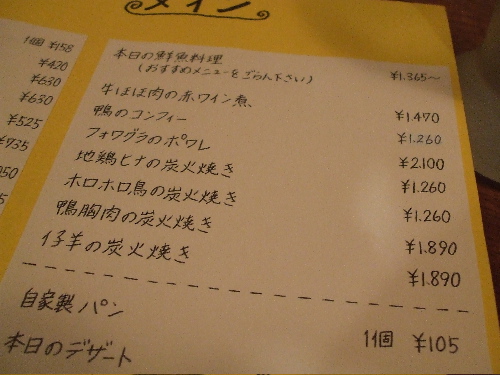 メイン
1個 ¥158
¥420
¥630
¥630
¥525
¥735
本日の鮮魚料理 ¥1.365〜
(おすすめメニューをごらん下さい)
牛ほほ肉の赤ワイン煮 ¥1.470
鴨のコンフィー ¥1.260
フォワグラのポワレ ¥2.100
地鶏ヒナの炭火焼き ¥1.260
ホロホロ鳥の炭火焼き ¥1.260
鴨胸肉の炭火焼き ¥1.890
仔羊の炭火焼き ¥1.890
自家製パン 1個 ¥105
本日のデザート